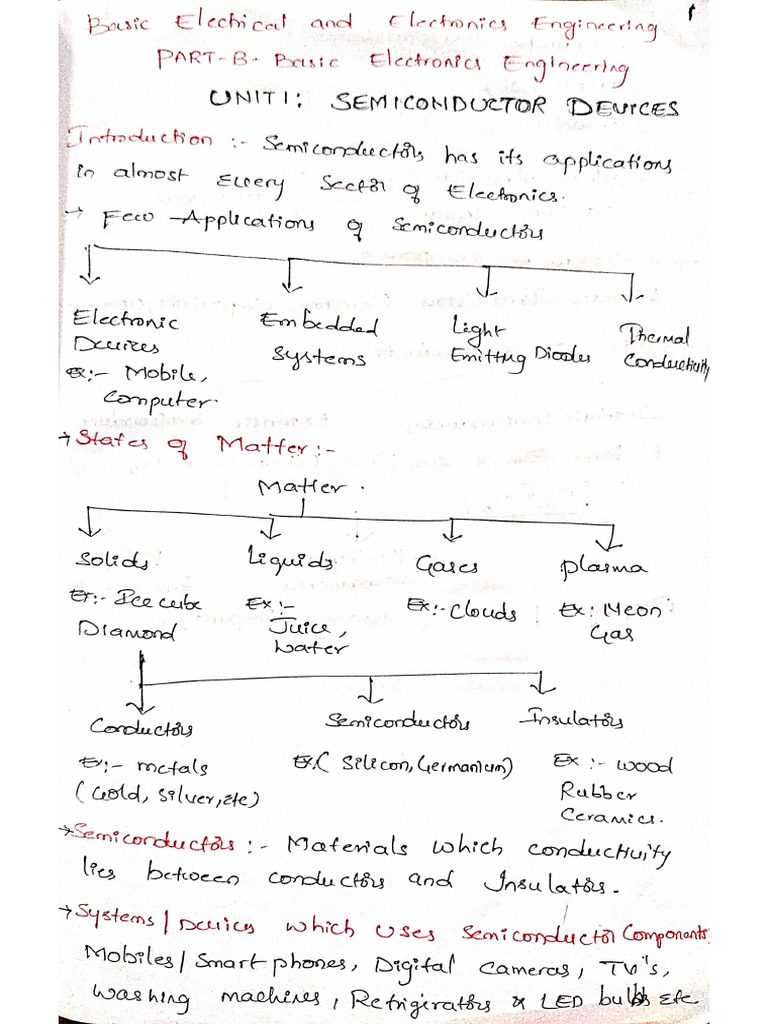 1
Basic Electrical and Electronics Engineering
PART-B- Basic Electronics Engineering
UNIT1: SEMICONDUCTOR DEVICES
Introduction :- Semiconductors has its applications
in almost Every Sector of Electronics.
→ Few Applications of Semiconductors
Electronic Devices Ex:- Mobile, Computer.
Embedded Systems
Light Emitting Diodes
Thermal Conductivity
→ States of Matter:-
Matter.
Solids Liquids Gases Plasma
Ex:- Ice cube Diamond
Ex:- Juice, Water
Ex:- Clouds
Ex: Neon Gas
Conductors Semiconductors Insulators
Ex:- metals (Gold, Silver, etc)
Ex.( Silicon, Germanium)
Ex :- wood Rubber Ceramics.
→ Semiconductors :- Materials which conductivity
lies between conductors and Insulators.
→ Systems/Devices which uses Semiconductor Components
Mobiles/Smart phones, Digital cameras, TV's,
washing machines, Refrigerators & LED bulbs etc